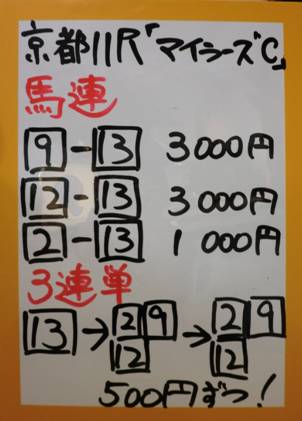 京都11R「マイラーズC」
馬連
9-13 3000円
12-13 3000円
2-13 1000円
3連単
13→2 9→2 9
12 12
500円ずつ!